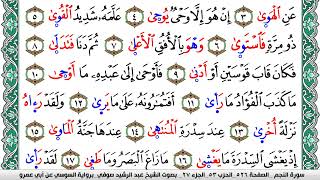 عَنِ الْهَوَىٰ ٣ إِنْ هُوَ إِلَّا وَحْيٌ يُوحَىٰ ٤ عَلَّمَهُ شَدِيدُ الْقُوَىٰ
٥ ذُو مِرَّةٍ فَاسْتَوَىٰ ٦ وَهْوَ بِالْأُفُقِ الْأَعْلَىٰ ٧ ثُمَّ دَنَا فَتَدَلَّىٰ ٨
فَكَانَ قَابَ قَوْسَيْنِ أَوْ أَدْنَىٰ ٩ فَأَوْحَىٰ إِلَىٰ عَبْدِهِ مَا أَوْحَىٰ ١٠
مَا كَذَبَ الْفُؤَادُ مَا رَأَىٰ ١١ أَفَتُمَارُونَهُ عَلَىٰ مَا يَرَىٰ ١٢ وَلَقَد رَّءَاهُ
نَزْلَةً أُخْرَىٰ ١٣ عِندَ سِدْرَةِ الْمُنتَهَىٰ ١٤ عِندَهَا جَنَّةُ الْمَاوَىٰ ١٥
إِذْ يَغْشَى السِّدْرَةَ مَا يَغْشَىٰ ١٦ مَا زَاغَ الْبَصَرُ وَمَا طَغَىٰ ١٧ لَقَد رَّأَىٰ
سورة النجم - الصفحة ٥٢٦ - الحزب ٥٣ - الجزء ٢٧ بصوت الشيخ عبد الرشيد صوفي برواية السوسي عن أبي عمرو